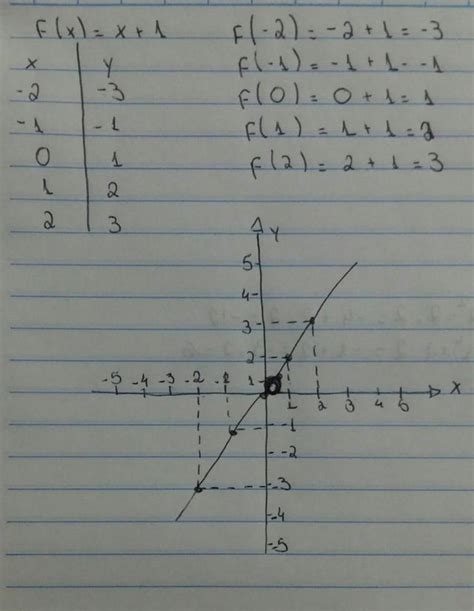 F(x) = x + 1
x y
-2 -3
-1 -1
0 1
1 2
2 3
F(-2) = -2 + 1 = -3
F(-1) = -1 + 1 - -1
F(0) = 0 + 1 = 1
F(1) = 1 + 1 = 2
F(2) = 2 + 1 = 3
Y
5
4
3
2
1
-5 -4 -3 -2 -1 1 2 3 4 5 X
-1
-2
-3
-4
-5